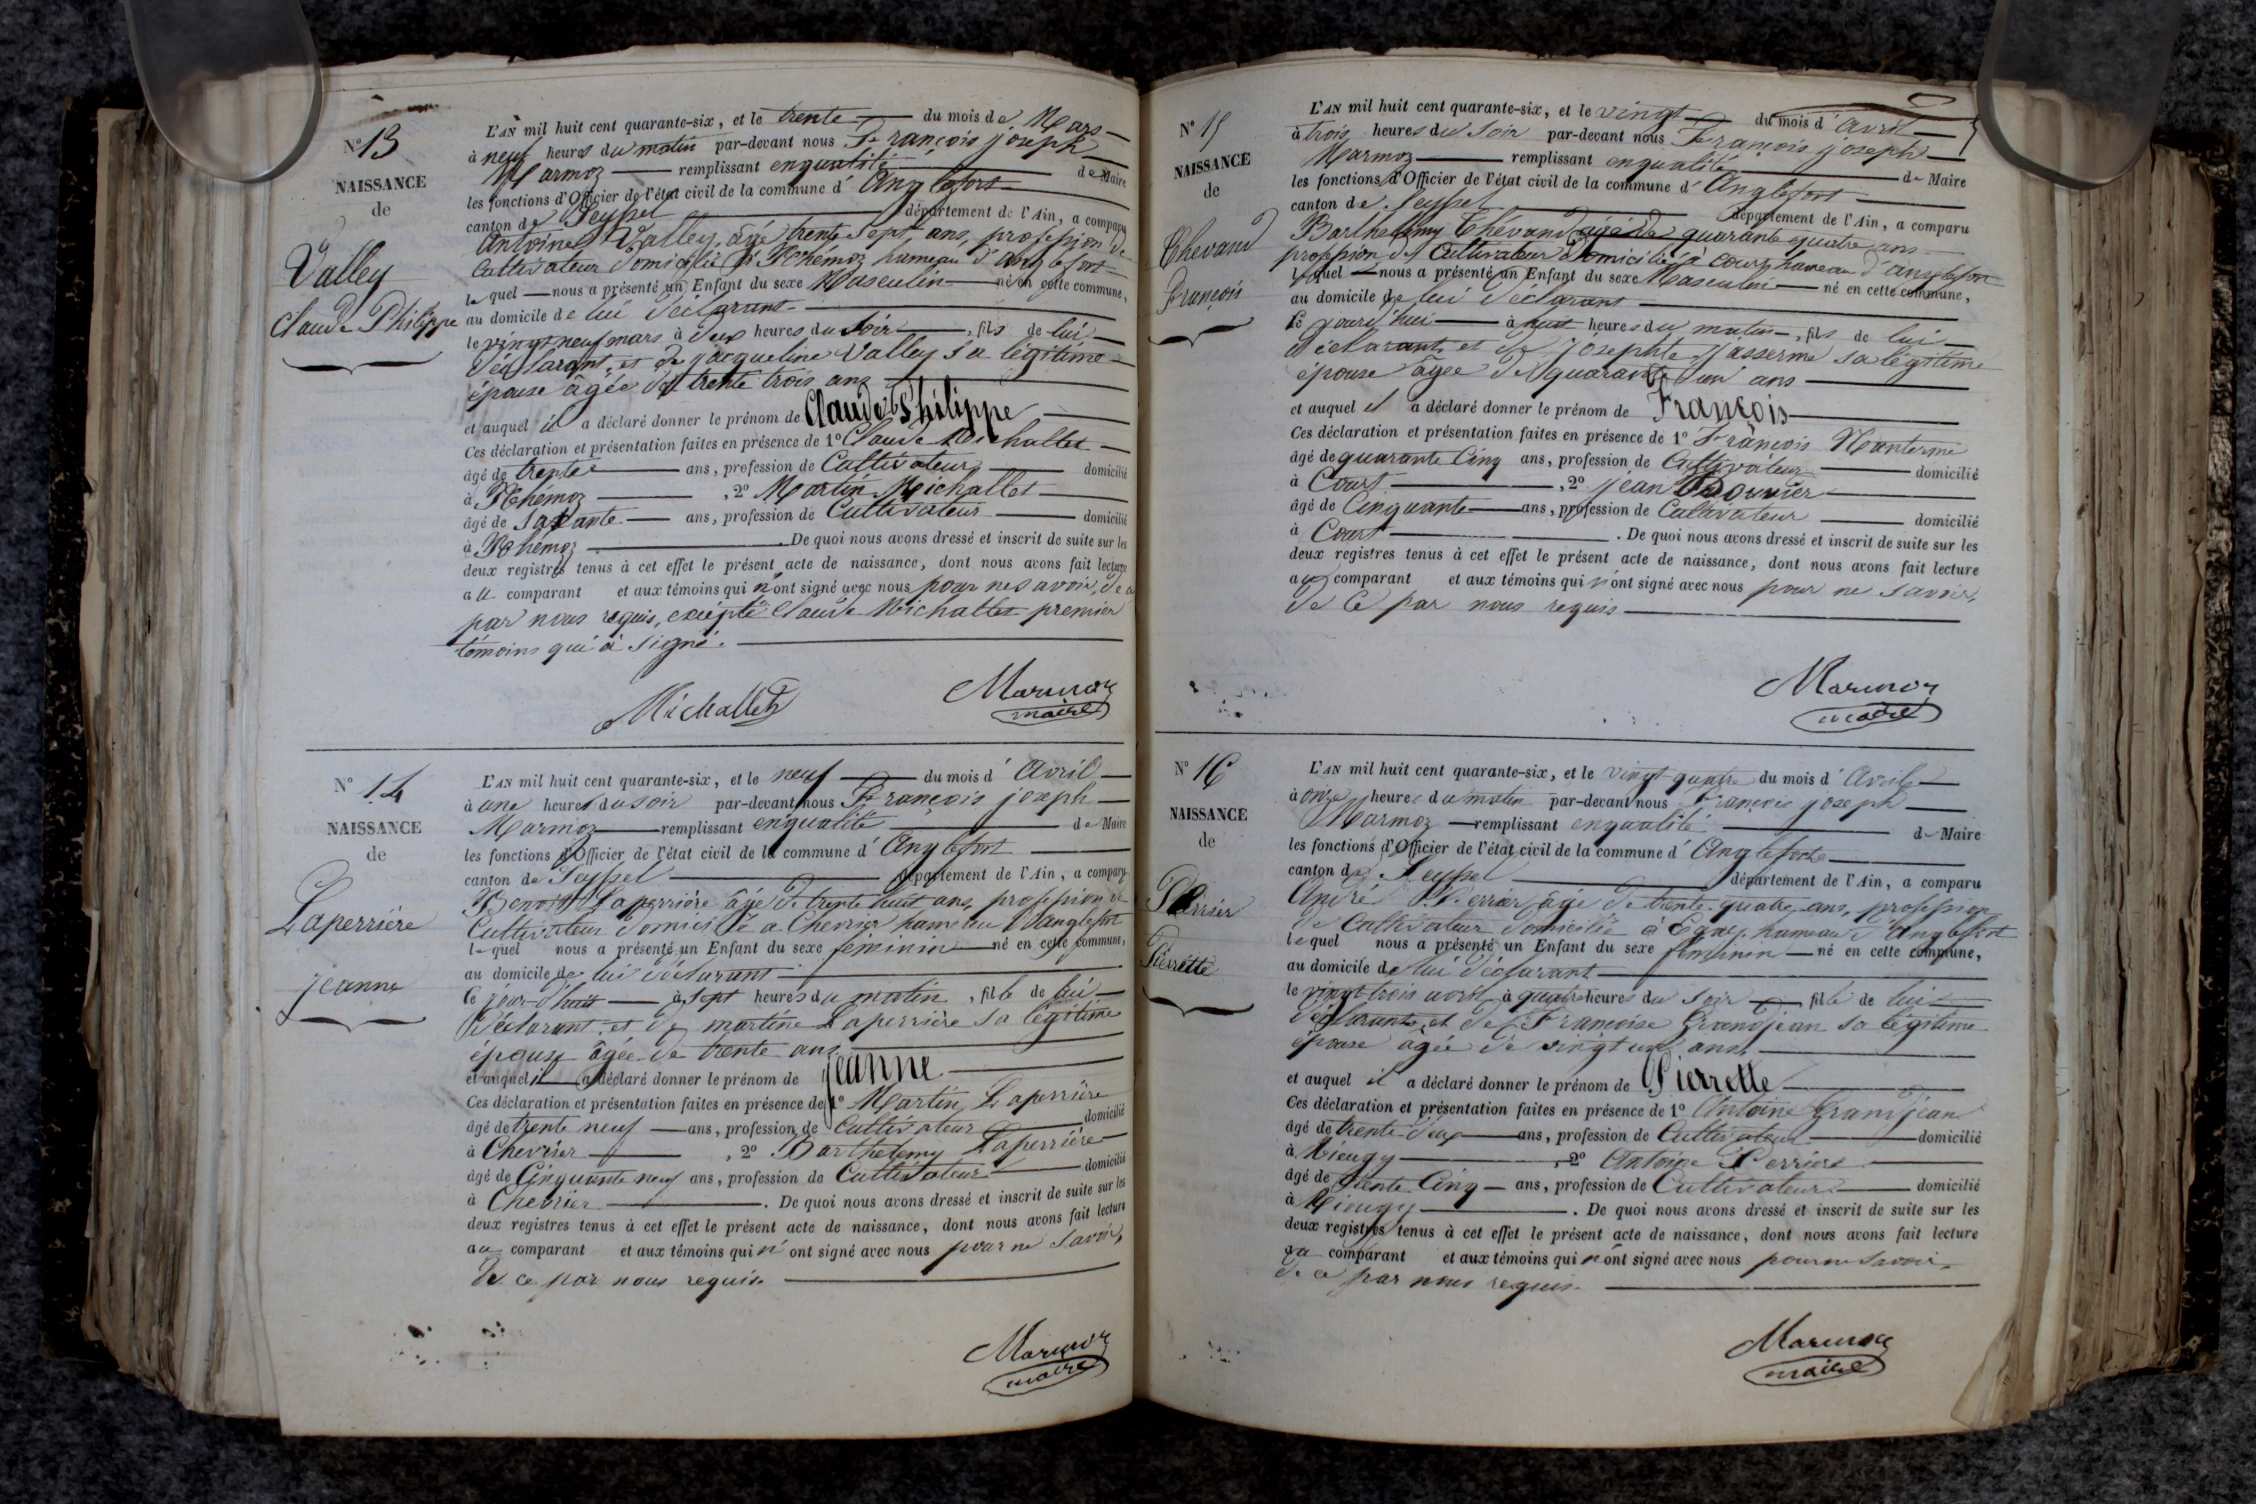 N° 13
NAISSANCE
de
Valley
Claude Philippe
L'AN mil huit cent quarante-six, et le trente du mois de Mars
à neuf heures du matin par-devant nous François joseph
Marmoz remplissant enqualité de Maire
les fonctions d'Officier de l'état civil de la commune d'Anglefort
canton de Seyssel département de l'Ain, a comparu
Antoine Valley, âgé trente sept ans, profession de
Cultivateur domicilié à Rhémoz hameau d'anglefort
lequel nous a présenté un Enfant du sexe Masculin né en cette commune,
au domicile de lui déclarant
le vingt neuf mars à deux heures du soir, fils de lui
déclarant, et de jacqueline Valley sa légitime
épouse âgée de trente trois ans
et auquel il a déclaré donner le prénom de Claude Philippe
Ces déclaration et présentation faites en présence de 1° Claude Michallet
âgé de trente ans, profession de Cultivateur domicilié
à Rhémoz, 2° Martin Michallet
âgé de soixante ans, profession de Cultivateur domicilié
à Rhémoz. De quoi nous avons dressé et inscrit de suite sur les
deux registres tenus à cet effet le présent acte de naissance, dont nous avons fait lecture
au comparant et aux témoins qui n'ont signé avec nous pour ne savoir, de ce
par nous requis, excépté Claude Michallet premier
témoins qui à signé.
Michallet
Marmoz
maire
N° 14
NAISSANCE
de
Laperrière
jeanne
L'AN mil huit cent quarante-six, et le neuf du mois d'Avril
à une heure du soir par-devant nous François joseph
Marmoz remplissant enqualité de Maire
les fonctions d'Officier de l'état civil de la commune d'Anglefort
canton de Seyssel département de l'Ain, a comparu
Benoit Laperrière âgé de trente huit ans, profession de
Cultivateur domicilié à Chevrier hameau d'anglefort
lequel nous a présenté un Enfant du sexe féminin né en cette commune,
au domicile de lui déclarant
Ce jour d'huit à sept heures du matin, fille de lui
déclarant, et de martine Laperrière sa légitime
épouse âgée de trente ans
et auquel il a déclaré donner le prénom de jeanne
Ces déclaration et présentation faites en présence de 1° Martin Laperrière
âgé de trente neuf ans, profession de Cultivateur domicilié
à Chevrier, 2° Barthelemy Laperrière
âgé de Cinquante neuf ans, profession de Cultivateur domicilié
à Chevrier. De quoi nous avons dressé et inscrit de suite sur les
deux registres tenus à cet effet le présent acte de naissance, dont nous avons fait lecture
au comparant et aux témoins qui n'ont signé avec nous pour ne savoir,
de ce par nous requis.
Marmoz
maire
N° 15
NAISSANCE
de
Chevand
François
L'AN mil huit cent quarante-six, et le vingt du mois d'avril
à trois heures du soir par-devant nous François joseph
Marmoz remplissant enqualité de Maire
les fonctions d'Officier de l'état civil de la commune d'Anglefort
canton de Seyssel département de l'Ain, a comparu
Barthelemy Chévand âgé de quarante quatre ans
profession de Cultivateur domicilié à Court hameau d'anglefort
lequel nous a présenté un Enfant du sexe Masculin né en cette commune,
au domicile de lui déclarant
Ce jourd'hui à huit heures du matin, fils de lui
déclarant, et de josephte Jasserme sa légitime
épouse âgée de quarante un ans
et auquel il a déclaré donner le prénom de François
Ces déclaration et présentation faites en présence de 1° François Manterme
âgé de quarante Cinq ans, profession de Cultivateur domicilié
à Court, 2° jean Bouvier
âgé de Cinquante ans, profession de Cultivateur domicilié
à Court. De quoi nous avons dressé et inscrit de suite sur les
deux registres tenus à cet effet le présent acte de naissance, dont nous avons fait lecture
au comparant et aux témoins qui n'ont signé avec nous pour ne savoir,
de ce par nous requis
Marmoz
maire
N° 16
NAISSANCE
de
Perrier
Pierrette
L'AN mil huit cent quarante-six, et le vingt quatre du mois d'Avril
à onze heures du matin par-devant nous François joseph
Marmoz remplissant enqualité de Maire
les fonctions d'Officier de l'état civil de la commune d'Anglefort
canton de Seyssel département de l'Ain, a comparu
André Perrier âgé de trente quatre ans, profession
de Cultivateur domicilié à hameau d'Anglefort
lequel nous a présenté un Enfant du sexe féminin né en cette commune,
au domicile de lui déclarant
le vingt trois avril à quatre heures du soir fille de lui
déclarant, et de Francoise Grandjean sa légitime
épouse agée de vingt un ans,
et auquel il a déclaré donner le prénom de Pierrette
Ces déclaration et présentation faites en présence de 1° Antoine Grandjean
âgé de trente deux ans, profession de Cultivateur domicilié
à Mieugy, 2° Antoine Perrier
âgé de trente Cinq ans, profession de Cultivateur domicilié
à Mieugy. De quoi nous avons dressé et inscrit de suite sur les
deux registres tenus à cet effet le présent acte de naissance, dont nous avons fait lecture
au comparant et aux témoins qui n'ont signé avec nous pour ne savoir,
de ce par nous requis.
Marmoz
maire